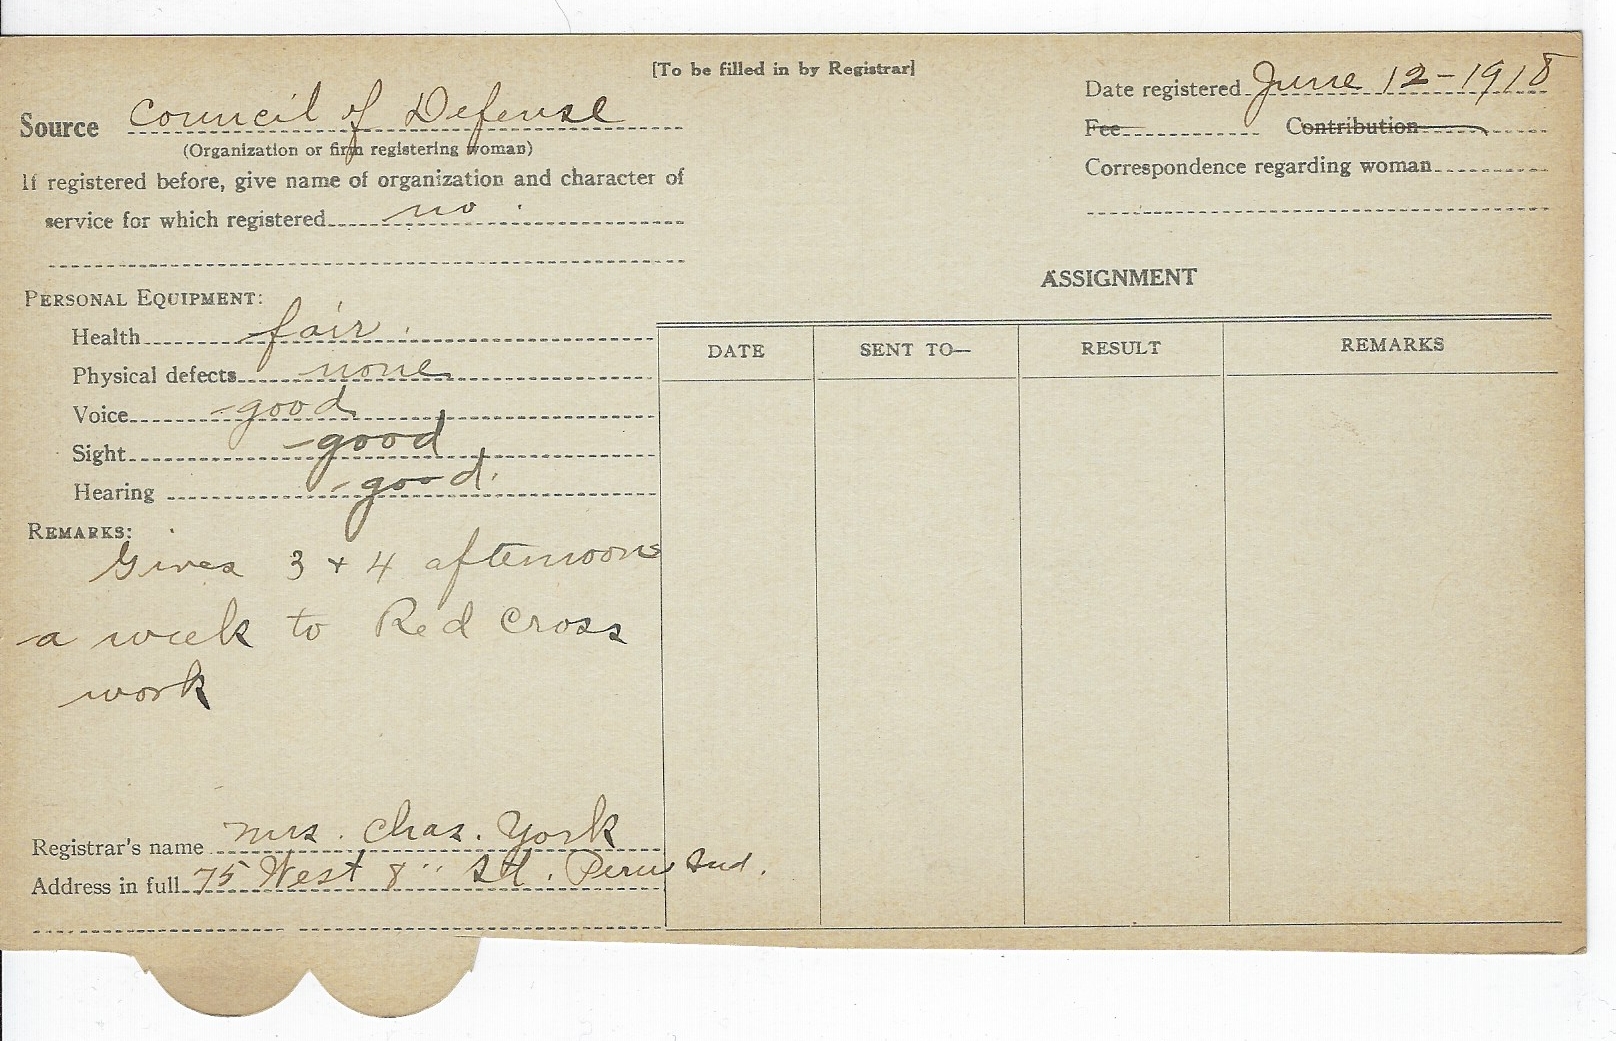 [To be filled in by Registrar]
Source Council of Defense
(Organization or firm registering woman)
If registered before, give name of organization and character of
service for which registered no
Date registered June 12-1918
Fee Contribution
Correspondence regarding woman
PERSONAL EQUIPMENT:
Health fair.
Physical defects none
Voice good
Sight good
Hearing good.
REMARKS:
Gives 3 + 4 afternoons
a week to Red Cross
work
Registrar's name Mrs. Chas. York
Address in full 75 West 8" St. Peru Ind.
ASSIGNMENT
DATE SENT TO— RESULT REMARKS